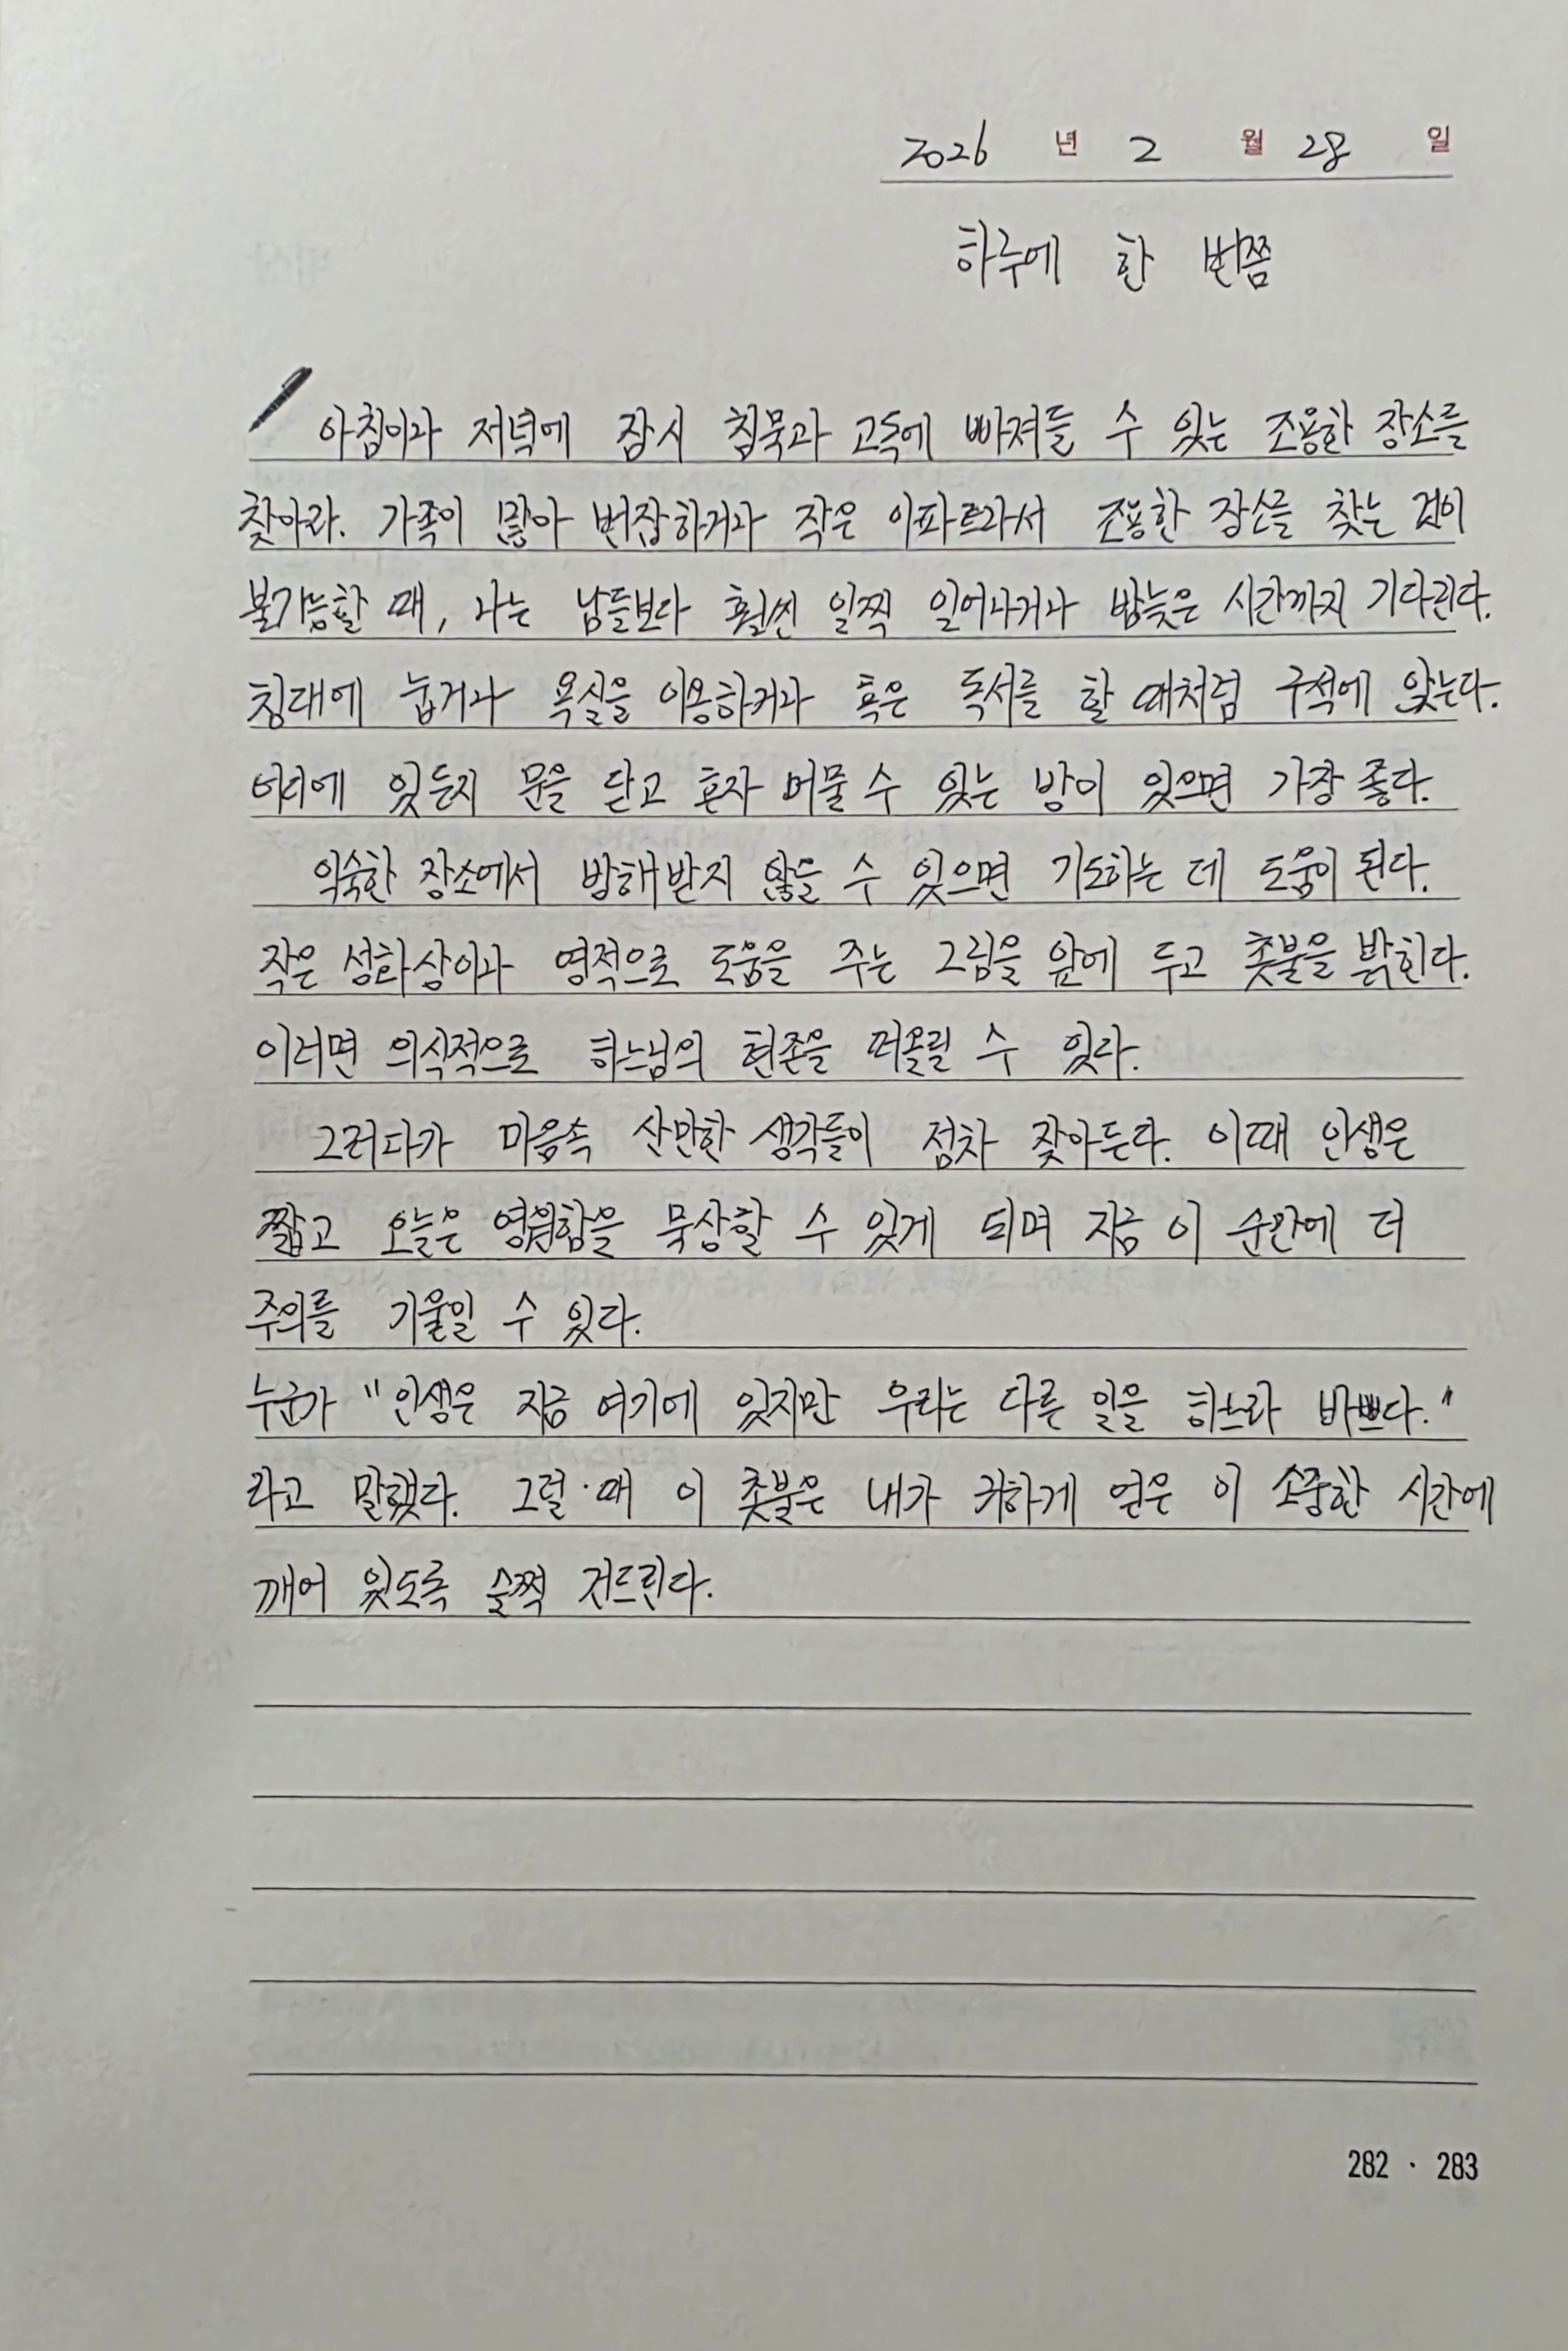 2026 년 2 월 28 일
하루에 한 번쯤
아침이나 저녁에 잠시 침묵과 고독에 빠져들 수 있는 조용한 장소를
찾아라. 가족이 많아 번잡하거나 작은 아파트라서 조용한 장소를 찾는 것이
불가능할 때, 나는 남들보다 훨씬 일찍 일어나거나 밤늦은 시간까지 기다린다.
침대에 눕거나 욕실을 이용하거나 혹은 독서를 할 때처럼 구석에 앉는다.
어디에 있든지 문을 닫고 혼자 머물 수 있는 방이 있으면 가장 좋다.
익숙한 장소에서 방해받지 않을 수 있으면 기도하는 데 도움이 된다.
작은 성화상이나 영적으로 도움을 주는 그림을 앞에 두고 촛불을 밝힌다.
이러면 의식적으로 하느님의 현존을 떠올릴 수 있다.
그러다가 마음속 산만한 생각들이 점차 잦아든다. 이때 인생은
짧고 오늘은 영원함을 묵상할 수 있게 되며 지금 이 순간에 더
주의를 기울일 수 있다.
누군가 "인생은 지금 여기에 있지만 우리는 다른 일을 하느라 바쁘다."
라고 말했다. 그럴 때 이 촛불은 내가 귀하게 얻은 이 소중한 시간에
깨어 있도록 슬쩍 건드린다.
282 · 283